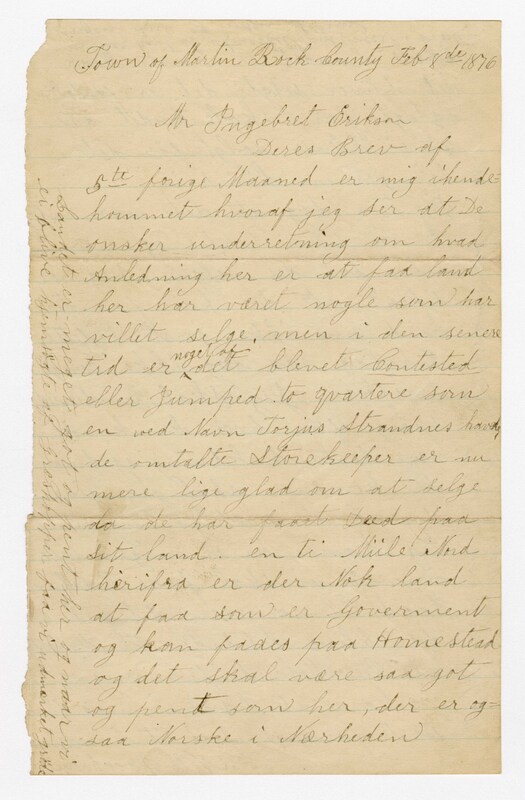 Town of Martin Rock County Feb 8de 1876
Mr Ingebret Erikson
Deres Brev af
5tt forige Maaned er mig ihende-
kommet hvoraf jeg ser at De
ønsker underretning om hvad
Anledning her er at faa land
her har været nogle som har
villet selge, men i den senere
tid er noget af det blevet Contested
eller Jumped. to quartere som
en ved Navn Torjus Strandnes havde,
de omtalte Storekeeper er nu
mere lige glad om at selge
da de har faaet Deed paa
sit land. en ti Miile Nord
herifra er der Nok land
at faa som er Goverment
og kan fades paa Homestead
og det skal være saa got
og pent som her, der er og-
saa Norske i Nærheden
Landet er meget got og pent her og naar vi
ei blive hjemsøgte af Græshopper faa